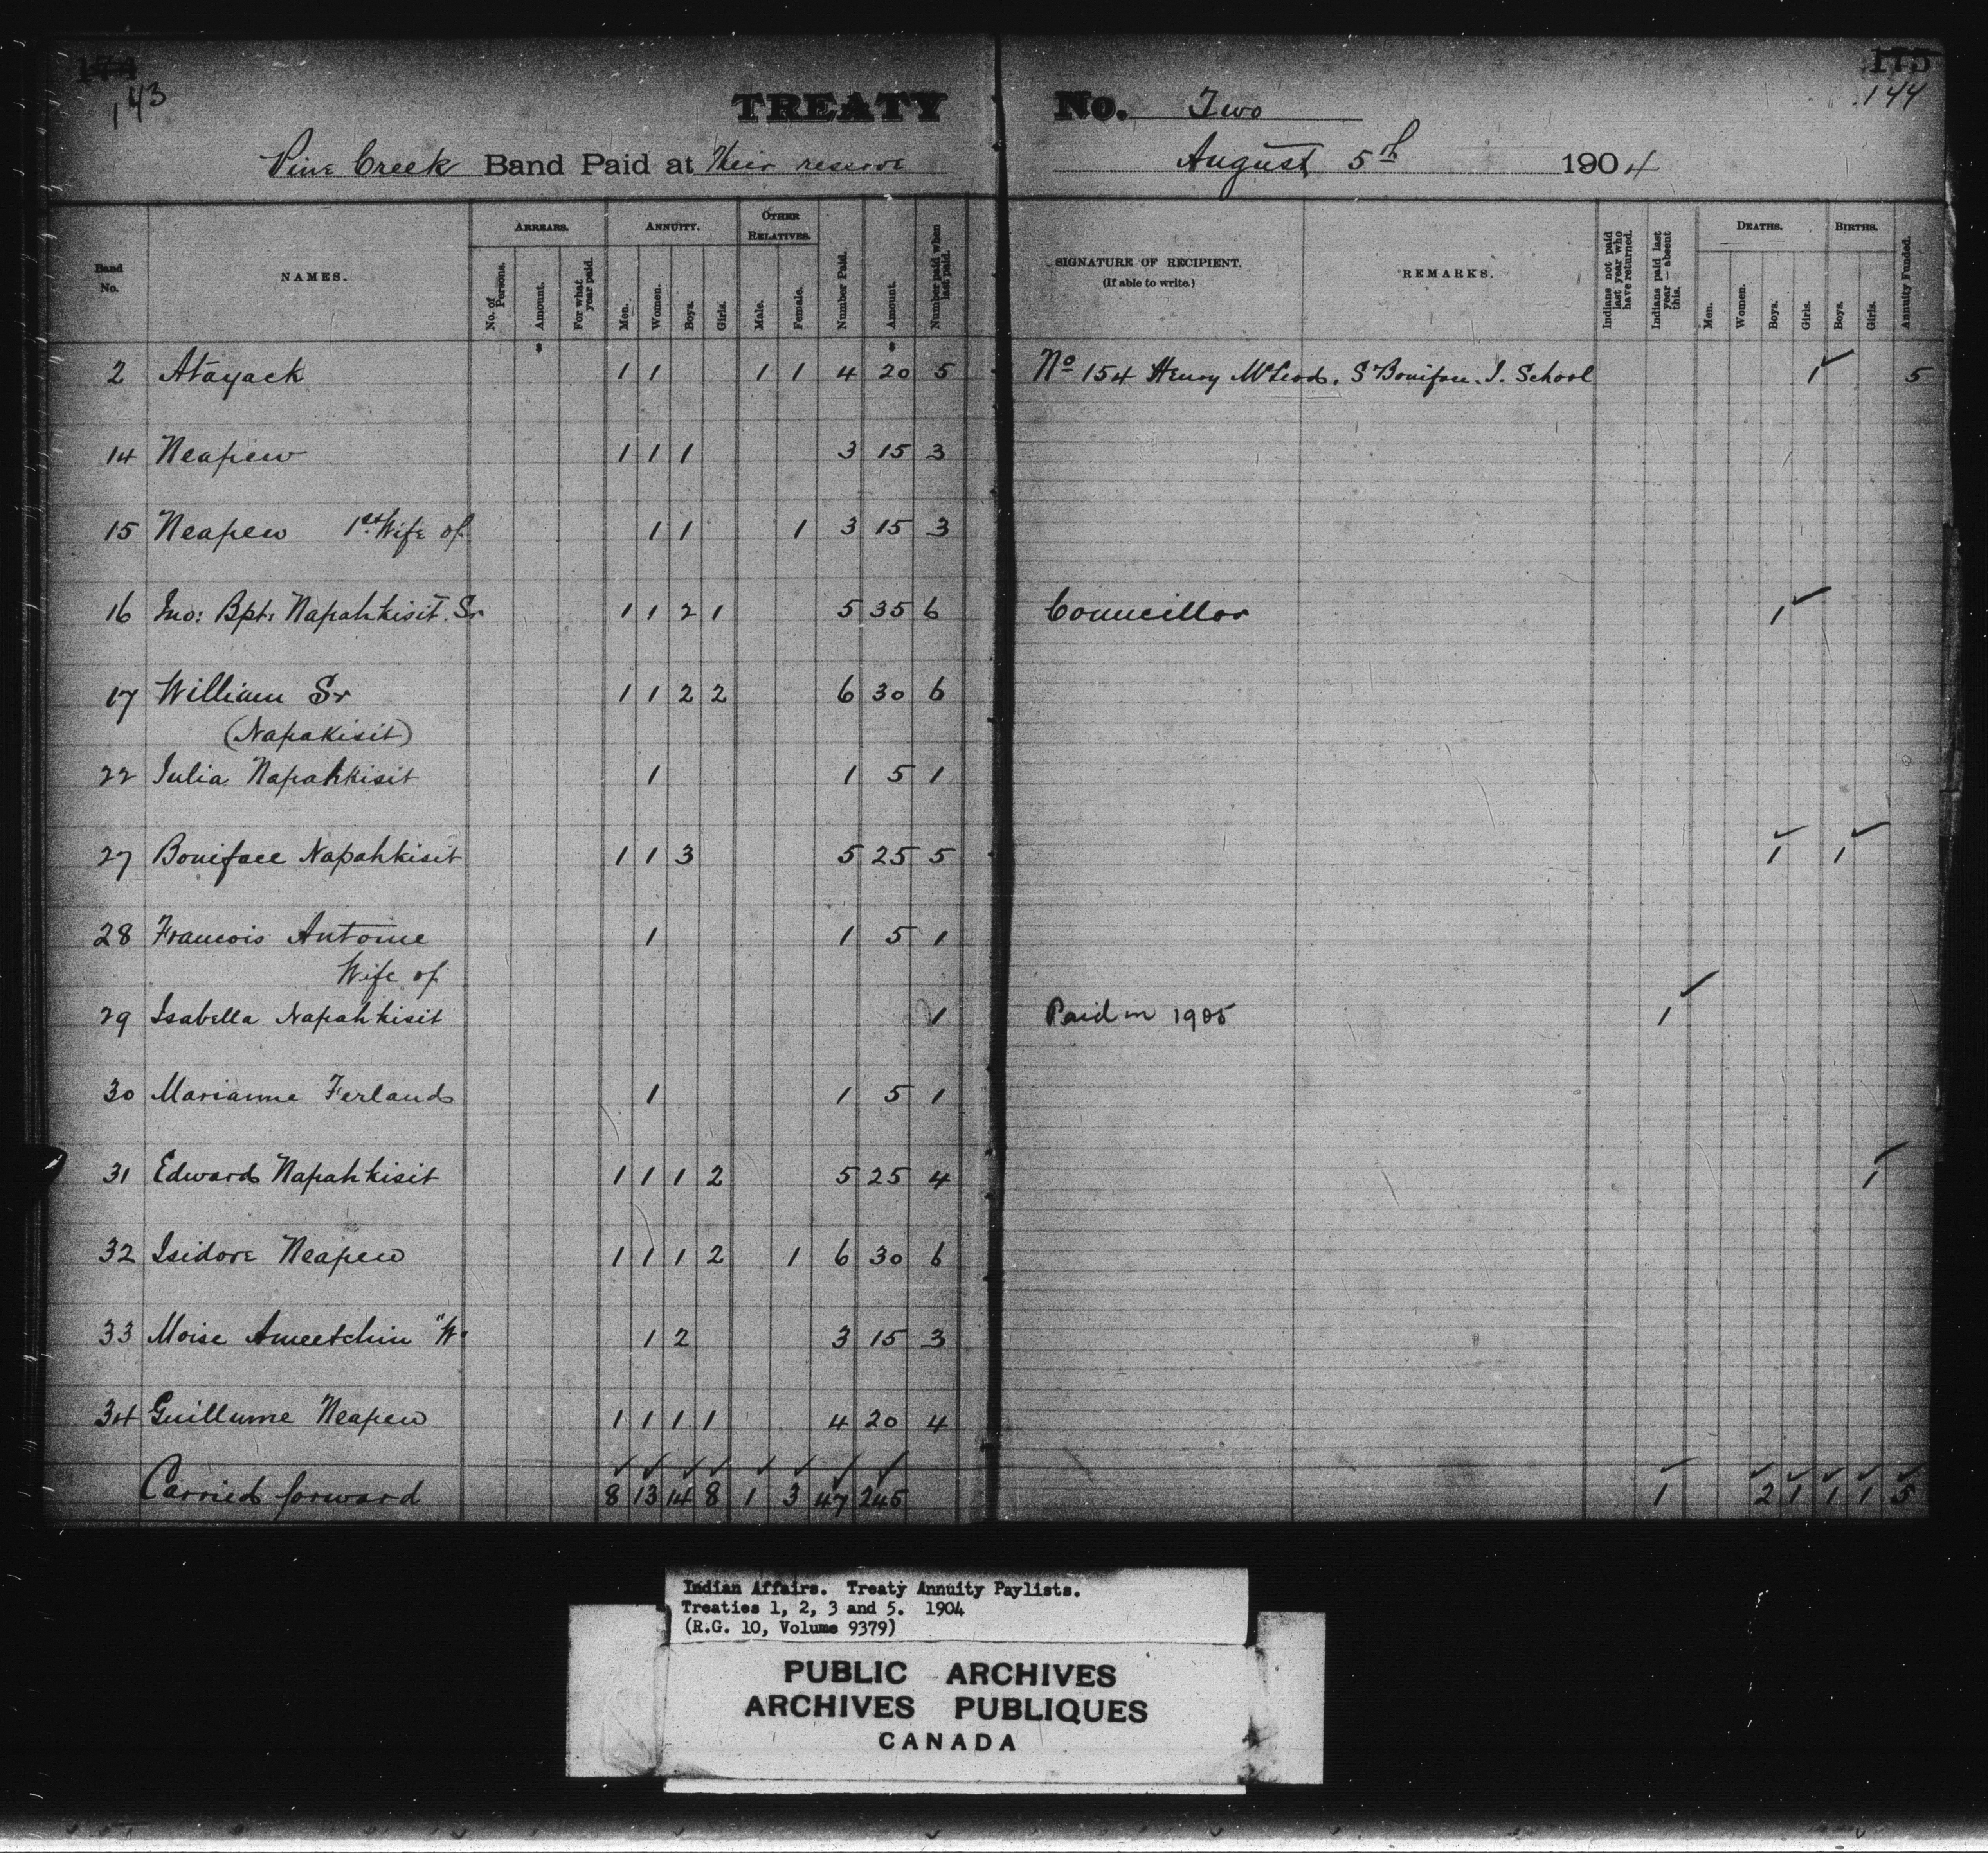 174
143
TREATY No. Two
175
144
Pine Creek Band Paid at Their reserve August 5th 1904
Band No.
NAMES.
ARREARS.
No. of Persons.
Amount.
For what year paid.
ANNUITY.
Men.
Women.
Boys.
Girls.
OTHER RELATIVES.
Male.
Female.
Number Paid.
Amount.
Number paid when last paid.
SIGNATURE OF RECIPIENT.
(If able to write.)
REMARKS.
Indians not paid last year who have returned.
Indians paid last year — absent this.
DEATHS.
Men.
Women.
Boys.
Girls.
BIRTHS.
Boys.
Girls.
Annuity Funded.
$ $
2 Atayack 1 1 1 1 4 20 5 No 154 Henry McLeod. St Boniface. I. School 1 5
14 Neapew 1 1 1 3 15 3
15 Neapew 1st Wife of 1 1 1 3 15 3
16 Jno: Bpt: Napahkisit. Sr 1 1 2 1 5 35 6 Councillor 1
17 William Sr 1 1 2 2 6 30 6
(Napakisit)
22 Julia Napahkisit 1 1 5 1
27 Boniface Napahkisit 1 1 3 5 25 5 1 1
28 Francois Antoine 1 1 5 1
Wife of
29 Isabella Napahkisit 1 Paid in 1905 1
30 Marianne Ferland 1 1 5 1
31 Edward Napahkisit 1 1 1 2 5 25 4 1
32 Isidore Neapew 1 1 1 2 1 6 30 6
33 Moise Ameetchin "W" 1 2 3 15 3
34 Guillume Neapew 1 1 1 1 4 20 4
Carried forward 8 13 14 8 1 3 47 245 1 2 1 1 1 5
Indian Affairs. Treaty Annuity Paylists.
Treaties 1, 2, 3 and 5. 1904
(R.G. 10, Volume 9379)
PUBLIC ARCHIVES
ARCHIVES PUBLIQUES
CANADA